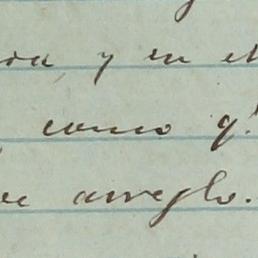 y en el
como q.
arreglo.